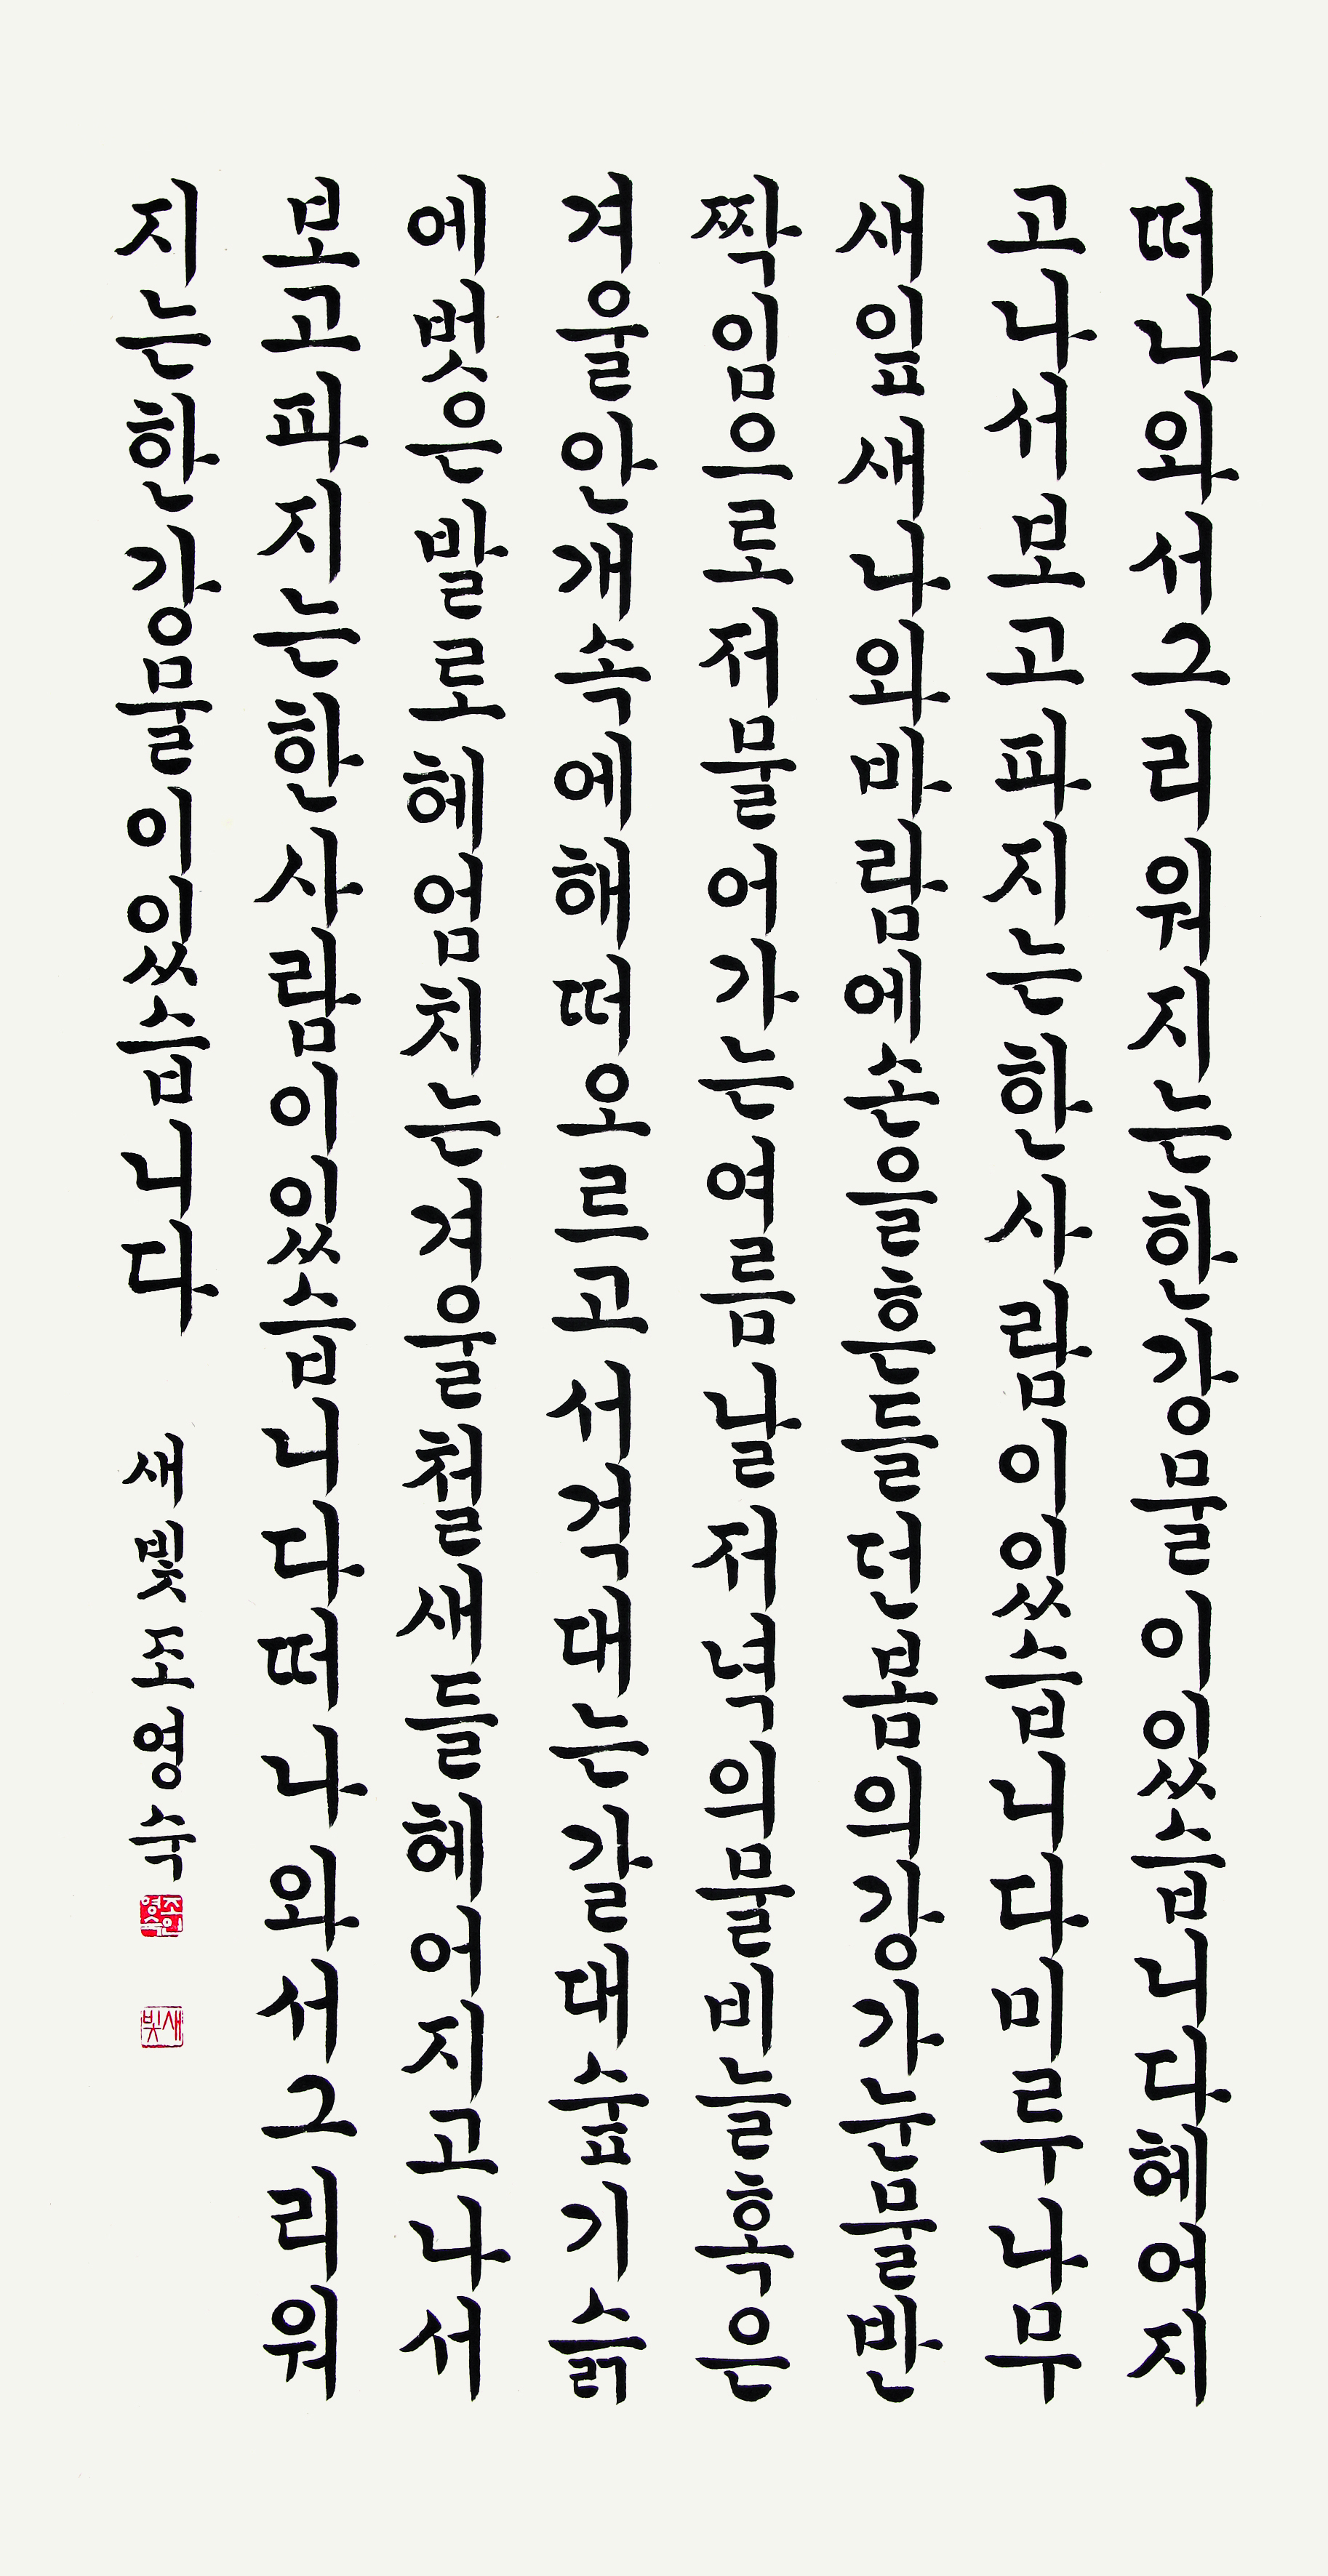 떠나와서그리워지는한강물이있습니다헤어지
고나서보고파지는한사람이있습니다미루나무
새잎새나와바람에손을흔들던봄의강가눈물반
짝임으로저물어가는여름날저녁의물비늘혹은
겨울안개속에해떠오르고서걱대는갈대숲기슭
에벗은발로헤엄치는겨울철새들헤어지고나서
보고파지는한사람이있습니다떠나와서그리워
지는한강물이있습니다 새빛조영숙
조인영숙
새빛